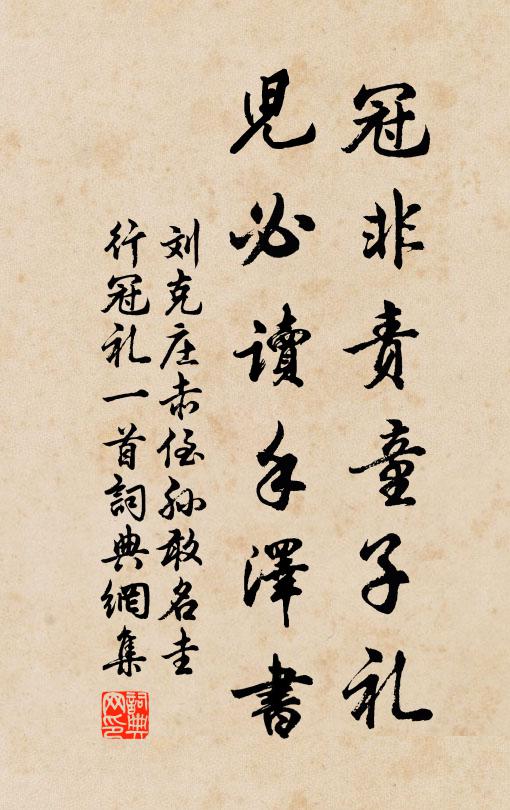 冠非责童子礼
兒必讀手澤書
刘克庄赤侄孙敢名圭
行冠礼一首詞典網集
詞典网印